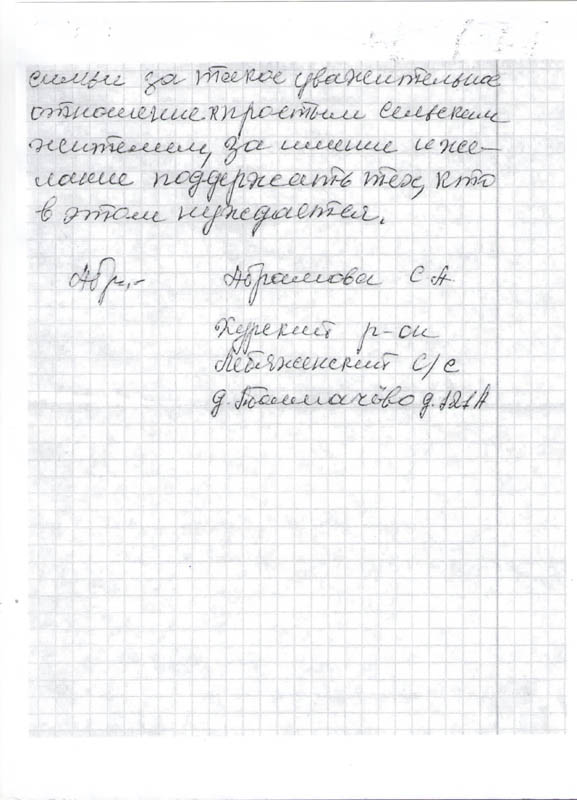 семьи за такое уважительное
отношение к простым сельским
жителям, за умение и же-
лание поддержать тех, кто
в этом нуждается.
Абр,-
Абрамова С А
Курский р-он
Лебяженский С/с
д. Толмачёво д. 121А